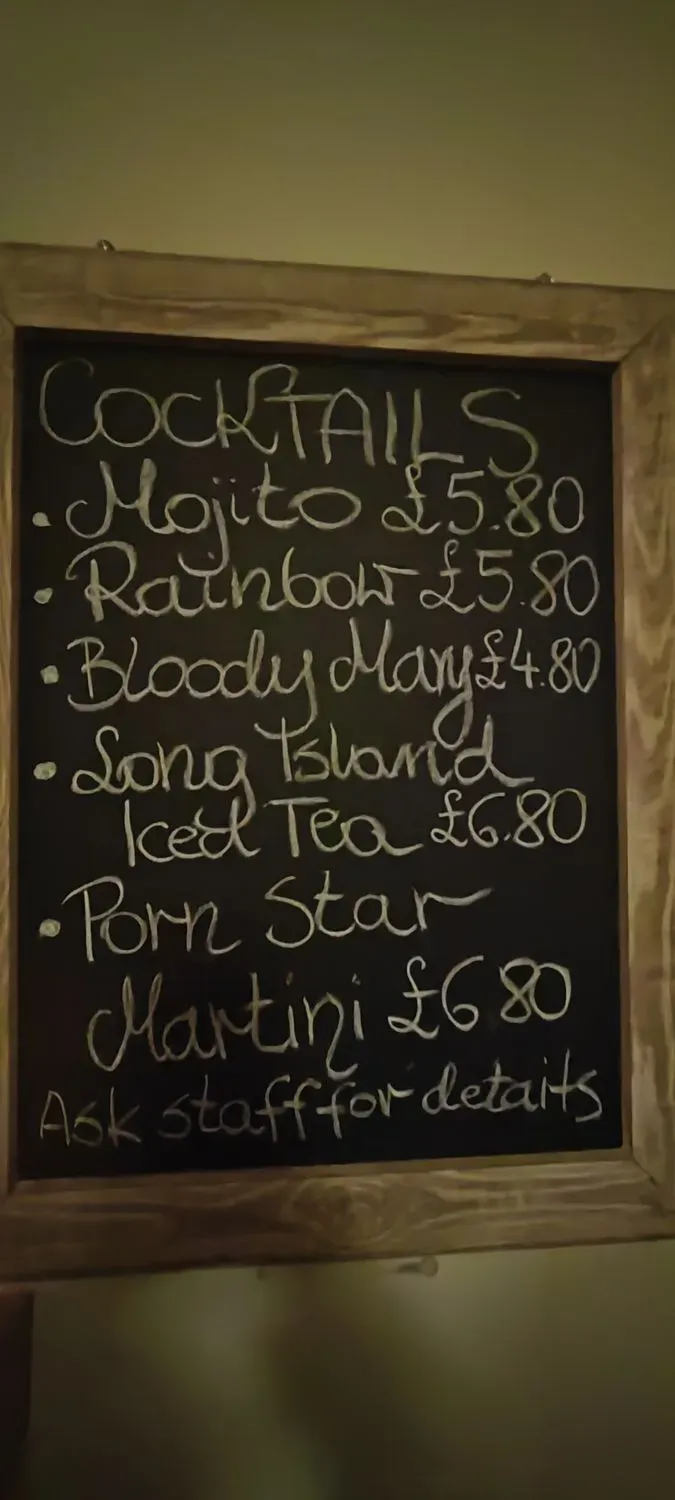 COCKTAILS
• Mojito £5.80
• Rainbow £5.80
• Bloody Mary £4.80
• Long Island
Iced Tea £6.80
• Porn Star
Martini £6.80
Ask staff for details